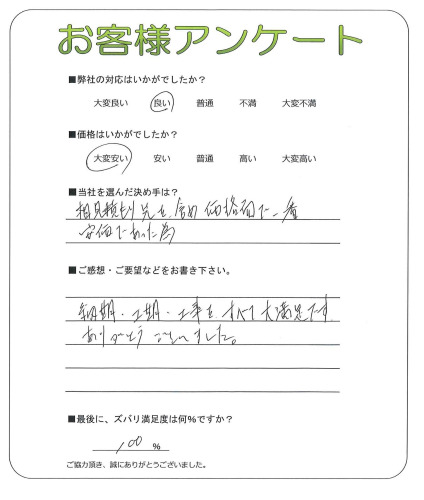 お客様アンケート
■弊社の対応はいかがでしたか?
大変良い 良い 普通 不満 大変不満
■価格はいかがでしたか?
大変安い 安い 普通 高い 大変高い
■当社を選んだ決め手は?
相見積もり先を含め価格面で一番
安価であった為
■ご感想・ご要望などをお書き下さい。
納期・工期・工事をすべて大満足です
ありがとうございました。
■最後に、ズバリ満足度は何%ですか?
100 %
ご協力頂き、誠にありがとうございました。